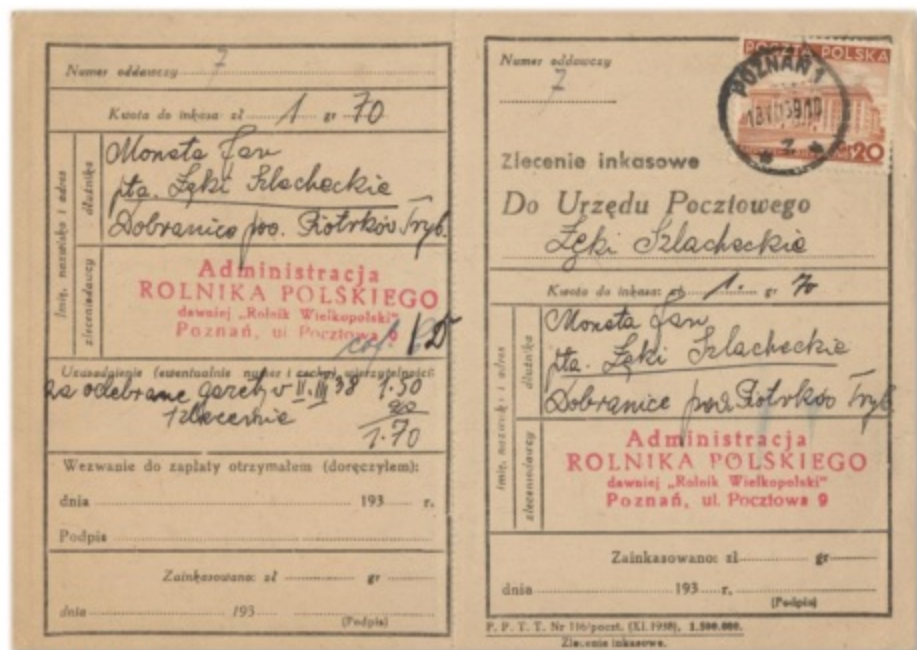 Numer oddawczy 7
Kwota do inkasa zł 1 gr 70
Imię, nazwisko i adres
dłużnika
Moneta Jan
pta. Łęki Szlacheckie
Dobranice pow. Piotrków Tryb.
zleceniodawcy
Administracja
ROLNIKA POLSKIEGO
dawniej „Rolnik Wielkopolski"
Poznań, ul Pocztowa 9
Uzasadnienie (ewentualnie numer i cechy) wierzytelności:
za odebrane gazety v II. III 38 1.50
zlecenie 20
1.70
Wezwanie do zapłaty otrzymałem (doręczyłem):
dnia 193 r.
Podpis
Zainkasowano: zł gr
dnia 193
(Podpis)
Numer oddawczy
7
POCZTA POLSKA
POZNAŃ 1
20
Zlecenie inkasowe
Do Urzędu Pocztowego
Łęki Szlacheckie
Kwota do inkasa: zł 1. gr 70
Imię, nazwisko i adres
dłużnika
Moneta Jan
pta. Łęki Szlacheckie
Dobranice pow. Piotrków Tryb.
zleceniodawcy
Administracja
ROLNIKA POLSKIEGO
dawniej „Rolnik Wielkopolski"
Poznań, ul. Pocztowa 9
Zainkasowano: zł gr
dnia 193 r.
(Podpis)
P. P. T. T. Nr 116/poczt. (XI. 1938). 1.500.000.
Zlecenie inkasowe.